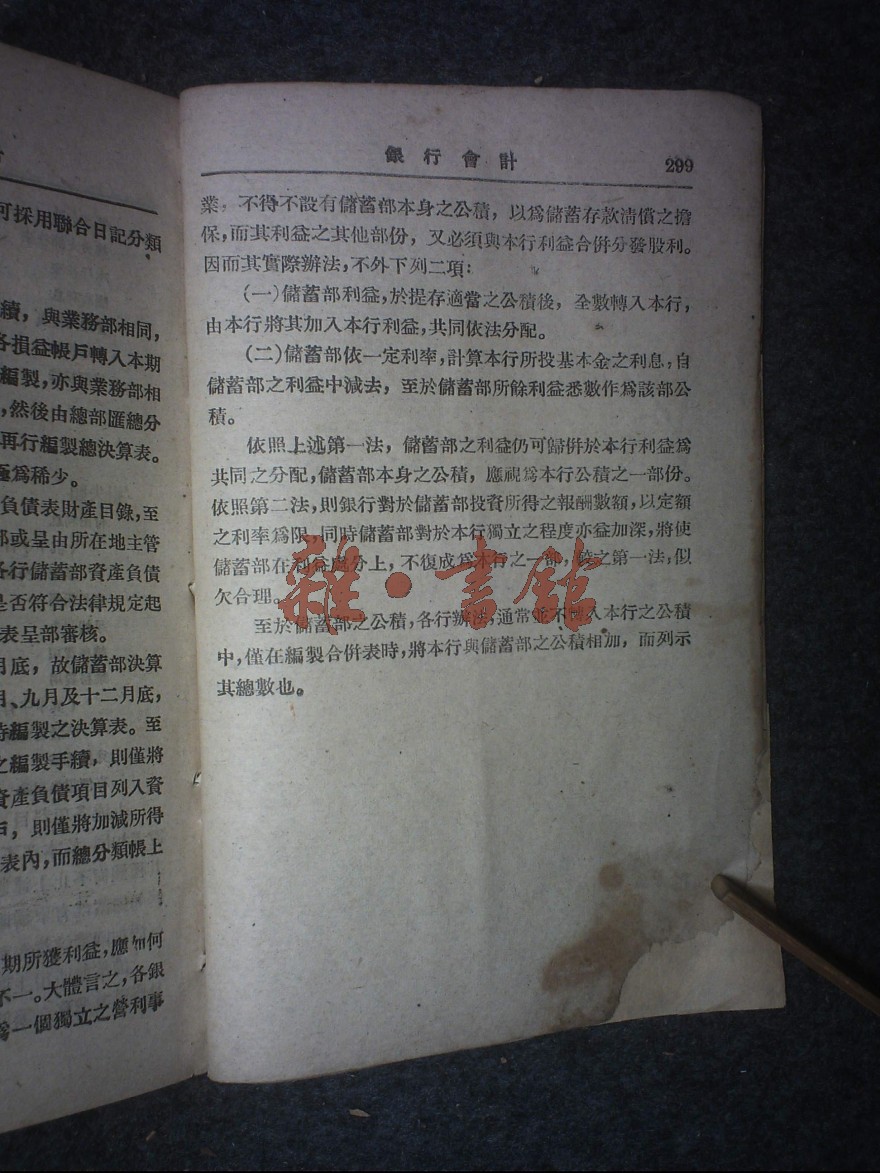 可採用聯合日記分類
續，與業務部相同，
各損益帳戶轉入本期
編製，亦與業務部相
，然後由總部匯總分
再行編製總決算表。
極爲稀少。
負債表財產目錄，至
部或呈由所在地主管
各行儲蓄部資產負債
是否符合法律規定起
表呈部審核。
月底，故儲蓄部決算
月、九月及十二月底，
時編製之決算表。至
之編製手續，則僅將
資產負債項目列入資
戶，則僅將加減所得
表內，而總分類帳上
期所獲利益，應如何
不一。大體言之，各銀
爲一個獨立之營利事
銀行會計
299
業，不得不設有儲蓄部本身之公積，以爲儲蓄存款清償之擔
保，而其利益之其他部份，又必須與本行利益合併分發股利。
因而其實際辦法，不外下列二項：
（一）儲蓄部利益，於提存適當之公積後，全數轉入本行，
由本行將其加入本行利益，共同依法分配。
（二）儲蓄部依一定利率，計算本行所投基本金之利息，自
儲蓄部之利益中減去，至於儲蓄部所餘利益悉數作爲該部公
積。
依照上述第一法，儲蓄部之利益仍可歸併於本行利益爲
共同之分配，儲蓄部本身之公積，應視爲本行公積之一部份。
依照第二法，則銀行對於儲蓄部投資所得之報酬數額，以定額
之利率爲限，同時儲蓄部對於本行獨立之程度亦益加深，將使
儲蓄部在利益處分上，不復成爲本行之一部，較之第一法，似
欠合理。
至於儲蓄部之公積，各行辦法，通常並不轉入本行之公積
中，僅在編製合併表時，將本行與儲蓄部之公積相加，而列示
其總數也。
雜·書館